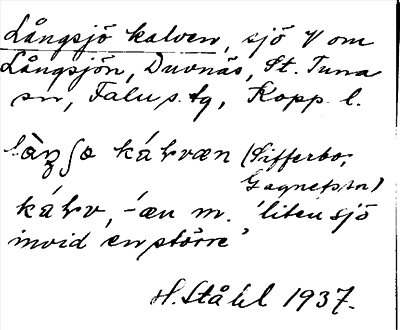 Långsjö kalven, sjö V om
Långsjön, Duvnäs, St. Tuna
sn, Falu s. tg, Kopp. l.
kárvæn (Sifferbo,
Gagnefs sn)
kárv, -æn m. 'liten sjö
invid en större'
H. Ståhl 1937.